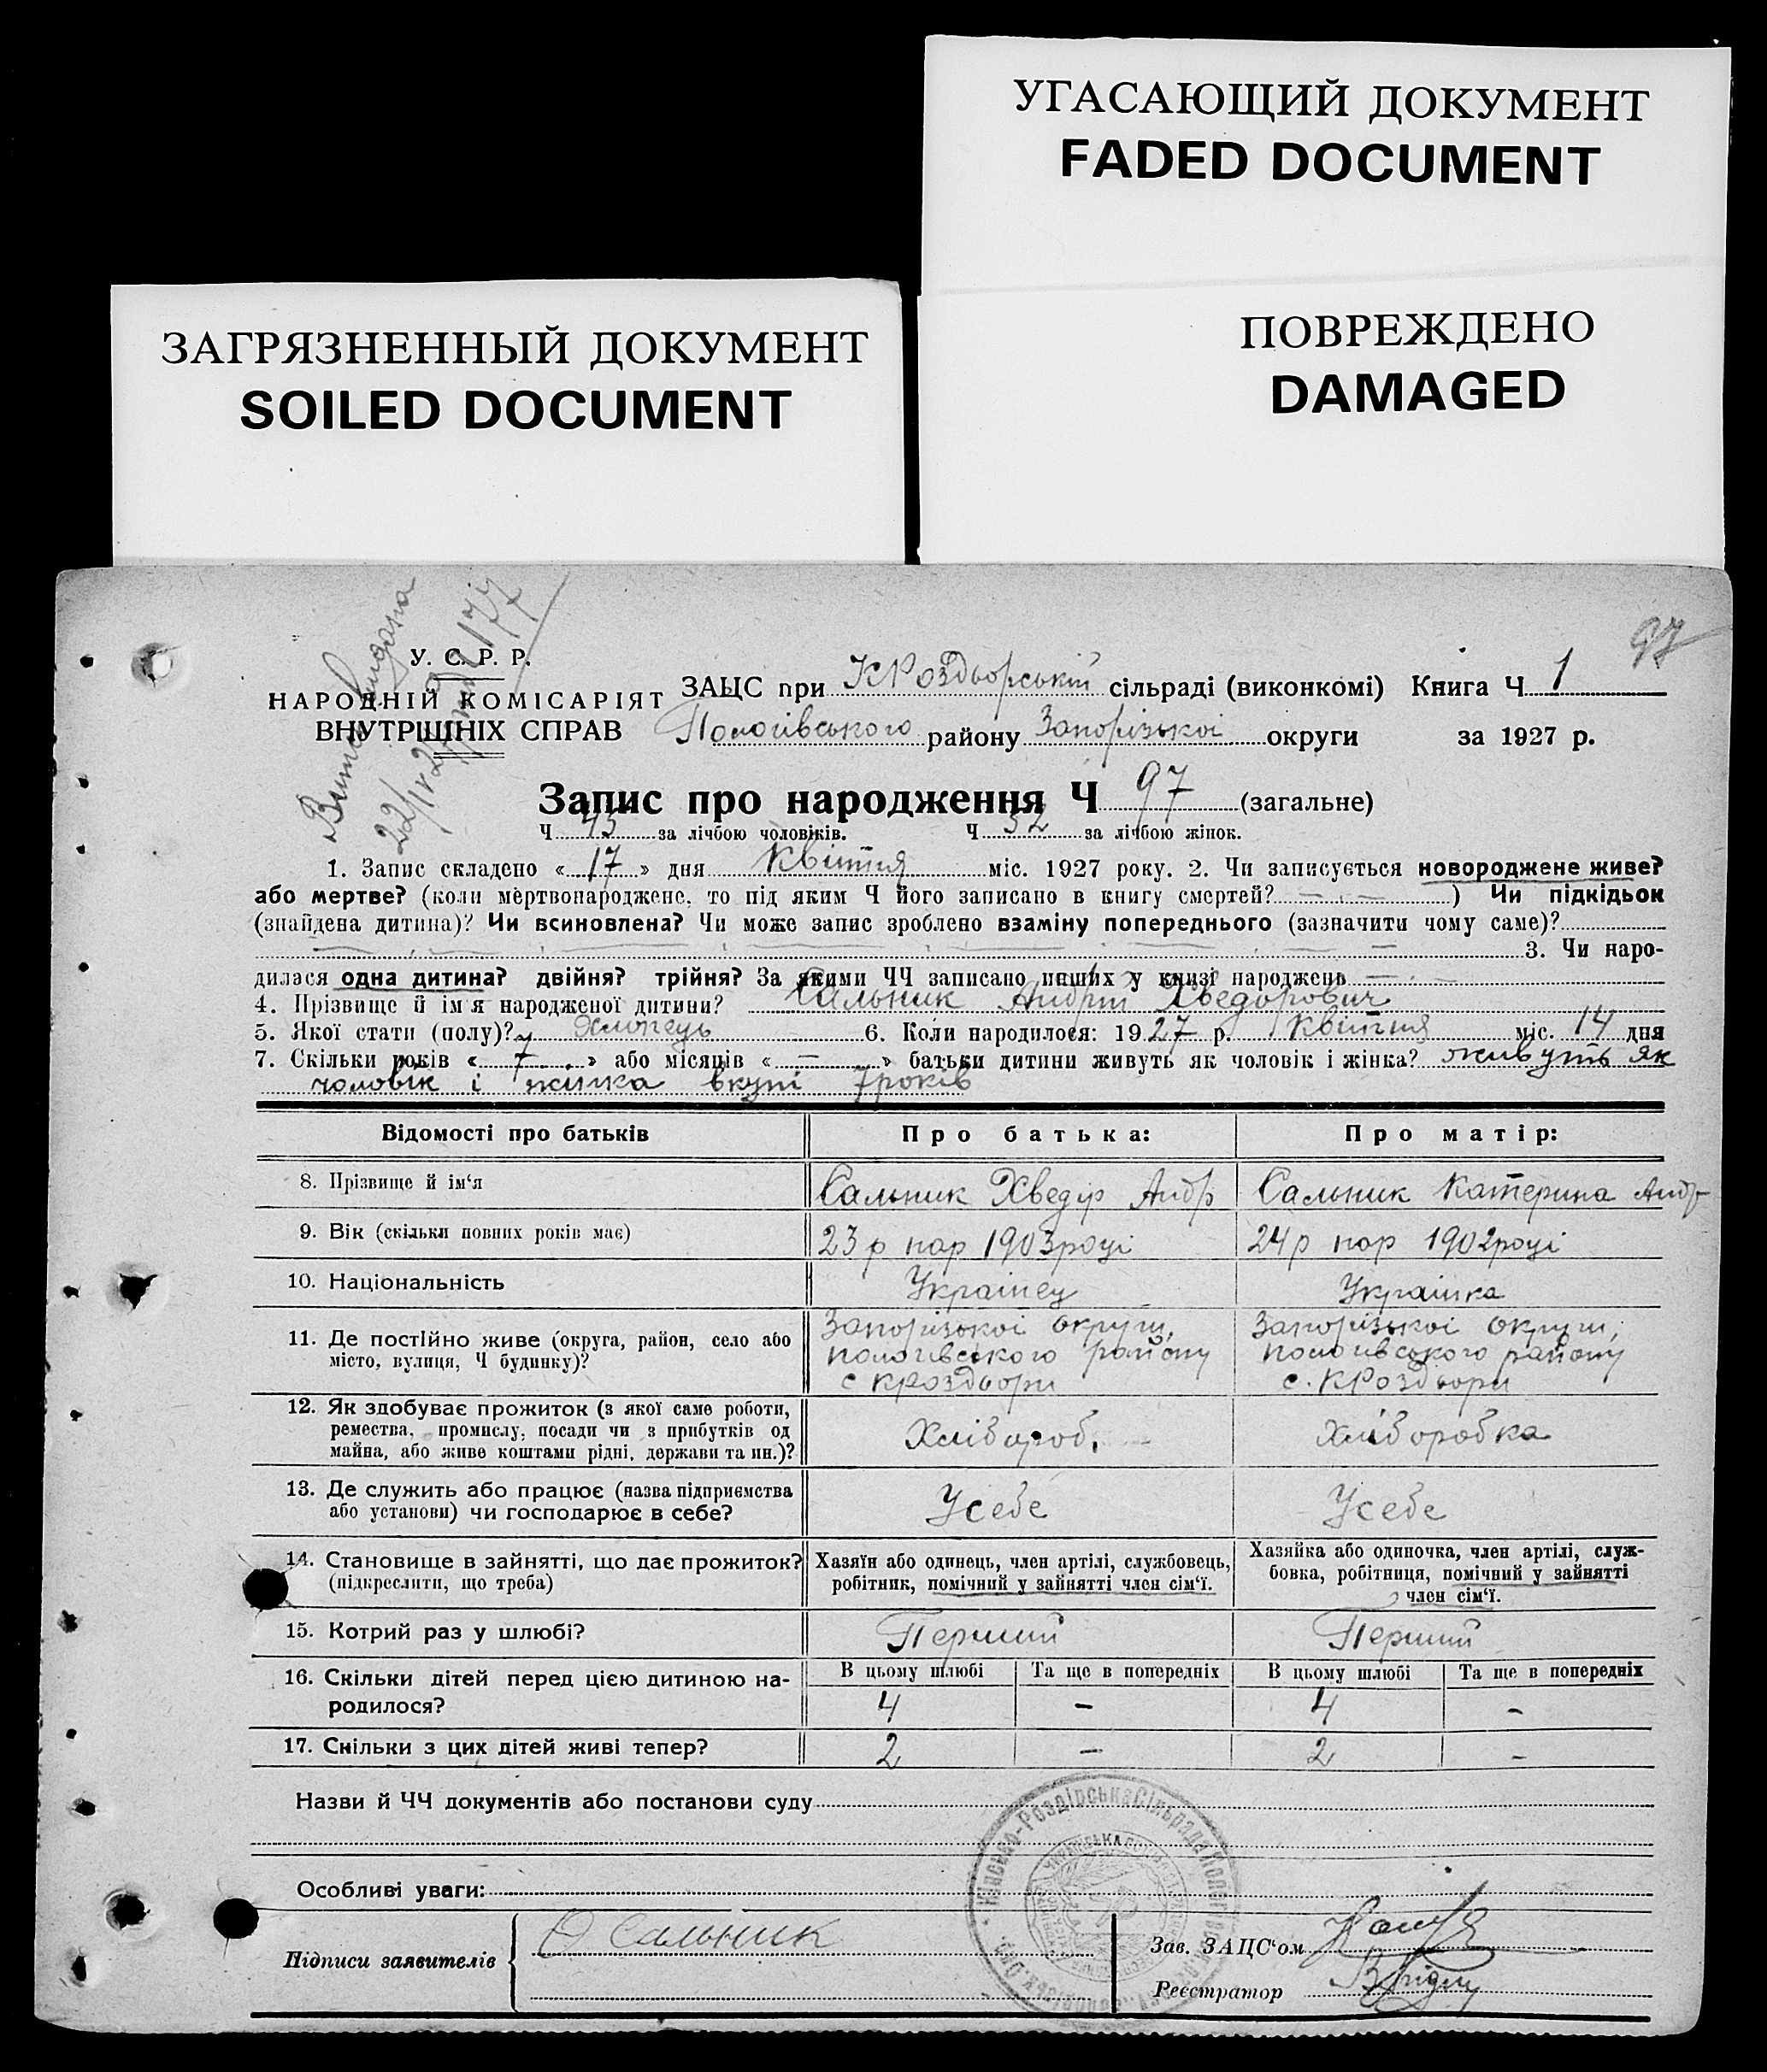 УГАСАЮЩИЙ ДОКУМЕНТ
FADED DOCUMENT
ПОВРЕЖДЕНО
DAMAGED
ЗАГРЯЗНЕННЫЙ ДОКУМЕНТ
SOILED DOCUMENT
97
У. С. Р. Р.
НАРОДНІЙ КОМІСАРІЯТ
ВНУТРІШНІХ СПРАВ
22/IV 27
177
ЗАЦС при КРоздьорській сільраді (виконкомі) Книга Ч 1
Пологівського району Запорізької округи за 1927 р.
Запис про народження Ч 97 (загальне)
Ч 45 за лічбою чоловіків. Ч 52 за лічбою жінок.
1. Запис складено « 17 » дня Квітня міс. 1927 року. 2. Чи записується новороджене живе?
або мертве? (коли мертвонароджене, то під яким Ч його записано в книгу смертей? — — ) Чи підкідьок
(знайдена дитина)? Чи всиновлена? Чи може запис зроблено взаміну попереднього (зазначити чому саме)?
3. Чи наро-
дилася одна дитина? двійня? трійня? За якими ЧЧ записано инших у книзі народжень — —
4. Прізвище й імя народженої дитини? Сальник Андрій Хведорович
5. Якої стати (полу)? Хлопець 6. Коли народилося: 1927 р. Квітня міс. 14 дня
7. Скільки років « 7 » або місяців « — » батьки дитини живуть як чоловік і жінка? живуть як
чоловік і жінка вкупі 7 років
Відомості про батьків Про батька: Про матір:
8. Прізвище й ім‘я Сальник Хведір Андр Сальник Катерина Андр
9. Вік (скільки повних років має) 23 р нар 1903 році 24 р нар 1902 році
10. Національність Українец Українка
11. Де постійно живе (округа, район, село або місто, вулиця, Ч будинку)?
Запорізької округи, Запорізької округи,
пологівського району пологівського району
с КРоздьори с. КРоздьори
12. Як здобуває прожиток (з якої саме роботи,
ремества, промислу, посади чи з прибутків од Хлібороб. Хліборобка
майна, або живе коштами рідні, держави та ин.)?
13. Де служить або працює (назва підприємства
або установи) чи господарює в себе? Усебе Усебе
14. Становище в зайнятті, що дає прожиток?
(підкреслити, що треба)
Хазяїн або одинець, член артілі, службовець,
робітник, помічний у зайнятті член сім‘ї.
Хазяйка або одиночка, член артілі, служ-
бовка, робітниця, помічний у зайнятті
член сім‘ї.
15. Котрий раз у шлюбі? Перший Перший
16. Скільки дітей перед цією дитиною на-
родилося?
В цьому шлюбі Та ще в попередніх В цьому шлюбі Та ще в попередніх
4 – 4 –
17. Скільки з цих дітей живі тепер? 2 – 2 –
Назви й ЧЧ документів або постанови суду
Особливі уваги:
Підписи заявителів Сальник
Зав. ЗАЦС‘ом
Реєстратор